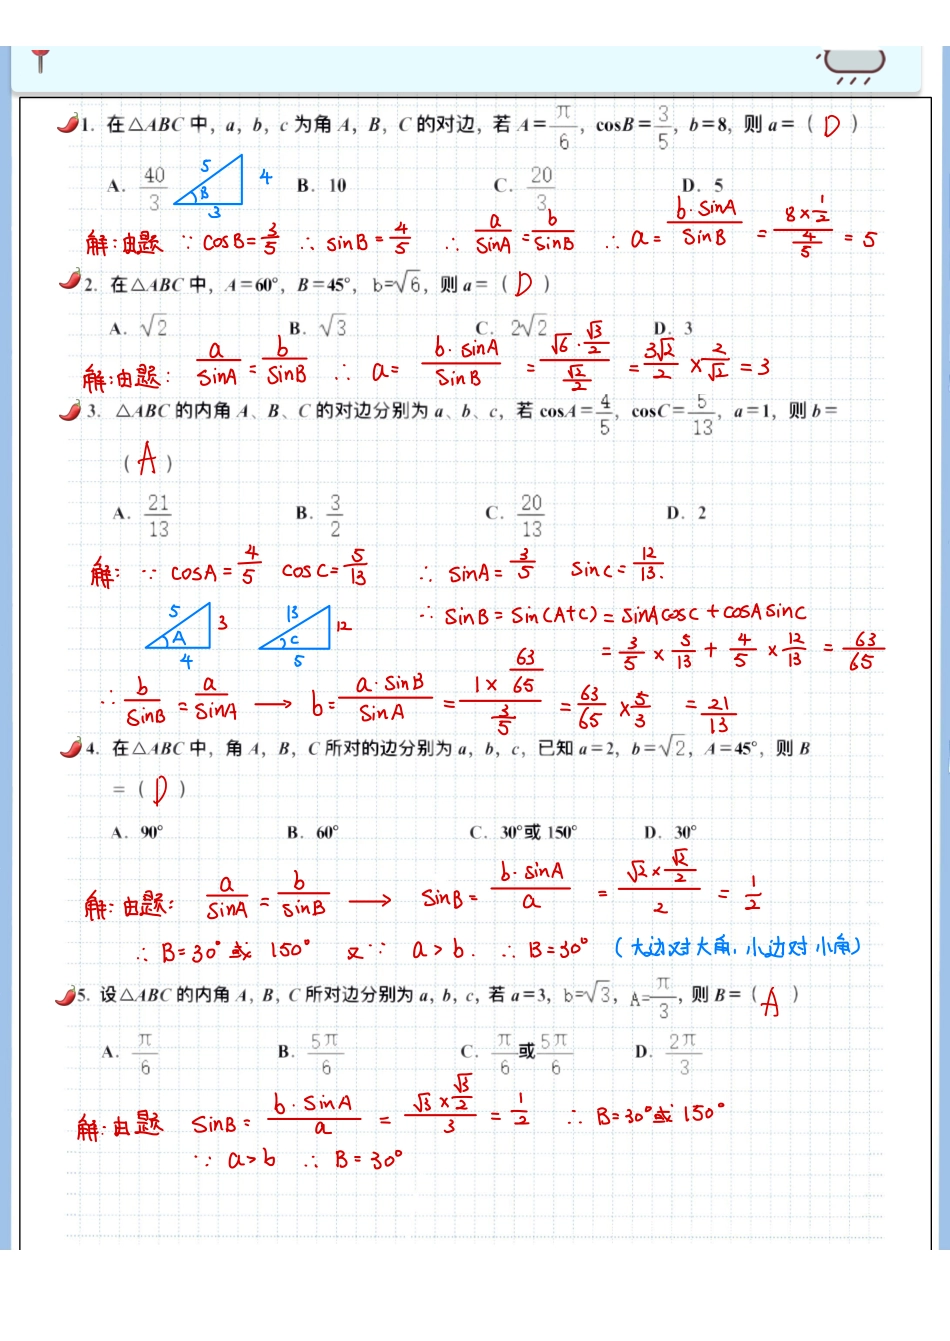 1. 在△ABC 中，a，b，c 为角 A，B，C 的对边，若 A=π/6，cosB=3/5，b=8，则 a=（ D ）
A. 40/3 B. 10 C. 20/3 D. 5
5 4 B 3
解:由题 ∵ cosB=3/5 ∴ sinB=4/5 ∴ a/sinA=b/sinB ∴ a=b·sinA/sinB=(8×1/2)/(4/5)=5
2. 在△ABC 中，A=60°，B=45°，b=√6，则 a=（ D ）
A. √2 B. √3 C. 2√2 D. 3
解:由题: a/sinA=b/sinB ∴ a=b·sinA/sinB=(√6·√3/2)/(√2/2)=3√2/2×2/√2=3
3. △ABC 的内角 A、B、C 的对边分别为 a、b、c，若 cosA=4/5，cosC=5/13，a=1，则 b=
（ A ）
A. 21/13 B. 3/2 C. 20/13 D. 2
解: ∵ cosA=4/5 cosC=5/13 ∴ sinA=3/5 sinC=12/13.
5 3 A 4 13 12 C 5 ∴ sinB=sin(A+C)=sinAcosC+cosAsinC
=3/5×5/13+4/5×12/13=63/65
∴ b/sinB=a/sinA → b=a·sinB/sinA=(1×63/65)/(3/5)=63/65×5/3=21/13
4. 在△ABC 中，角 A，B，C 所对的边分别为 a，b，c，已知 a=2，b=√2，A=45°，则 B
=（ D ）
A. 90° B. 60° C. 30°或 150° D. 30°
解:由题: a/sinA=b/sinB → sinB=b·sinA/a=(√2×√2/2)/2=1/2
∴ B=30°或 150° 又∵ a>b. ∴ B=30° (大边对大角,小边对小角)
5. 设△ABC 的内角 A，B，C 所对边分别为 a，b，c，若 a=3，b=√3，A=π/3，则 B=（ A ）
A. π/6 B. 5π/6 C. π/6或5π/6 D. 2π/3
解:由题 sinB=b·sinA/a=(√3×√3/2)/3=1/2 ∴ B=30°或 150°
∵ a>b ∴ B=30°